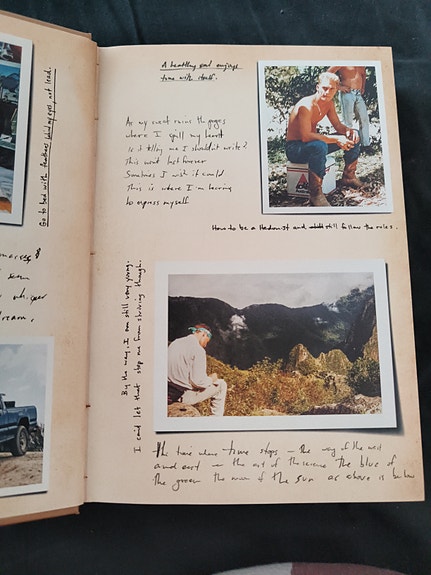 Go to bed with the dreams behind my eyes, not lead.
dream,
A healthy soul enjoys
time with itself.
As my sweat ruins the pages
where I spill my heart
Is it telling me I shouldn't write?
This won't last forever
Sometimes I wish it could
This is where I'm learning
to express myself
How to be a Hedonist and still follow the rules.
By the way, I am still very young.
I can't let that stop me from striving though.
The time where time stops – the way of the west
and east – the art of the scene the blue of
the green the moon of the sun as above is below